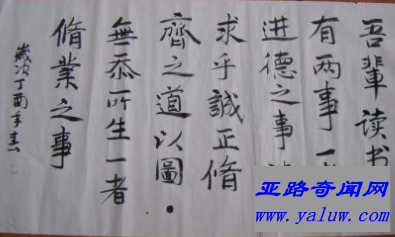 吾輩读书
有两事一
进德之事
求乎誠正脩
齊之道以圖
無忝所生一者
脩業之事
歲次丁酉年春
亚路奇闻网
www.yaluw.com